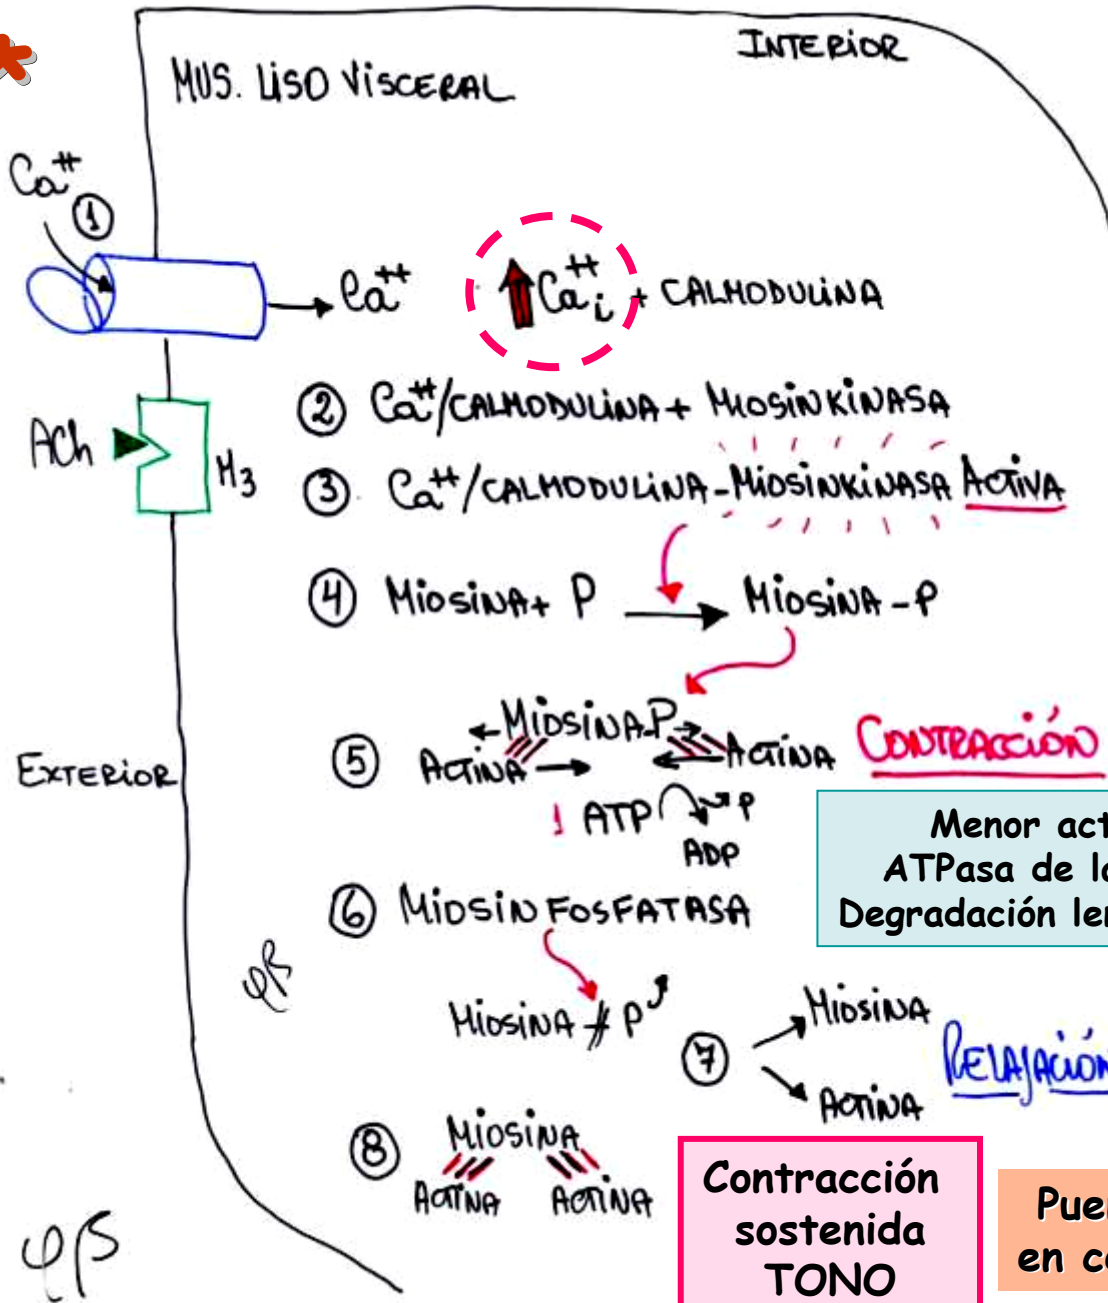 *
INTERIOR
MUS. LISO VISCERAL
Ca++
①
Ca++ ↑Ca++i + CALMODULINA
② Ca++/CALMODULINA + MIOSINKINASA
ACh M3
③ Ca++/CALMODULINA-MIOSINKINASA ACTIVA
④ MIOSINA + P → MIOSINA-P
MIOSINA-P
⑤ ACTINA ACTINA CONTRACCIÓN
EXTERIOR
ATP P
ADP
Menor act
ATPasa de
Degradación
⑥ MIOSINFOSFATASA
MIOSINA P
⑦ MIOSINA
ACTINA
RELAJACIÓN
⑧ MIOSINA
ACTINA ACTINA
Contracción
sostenida
TONO
en